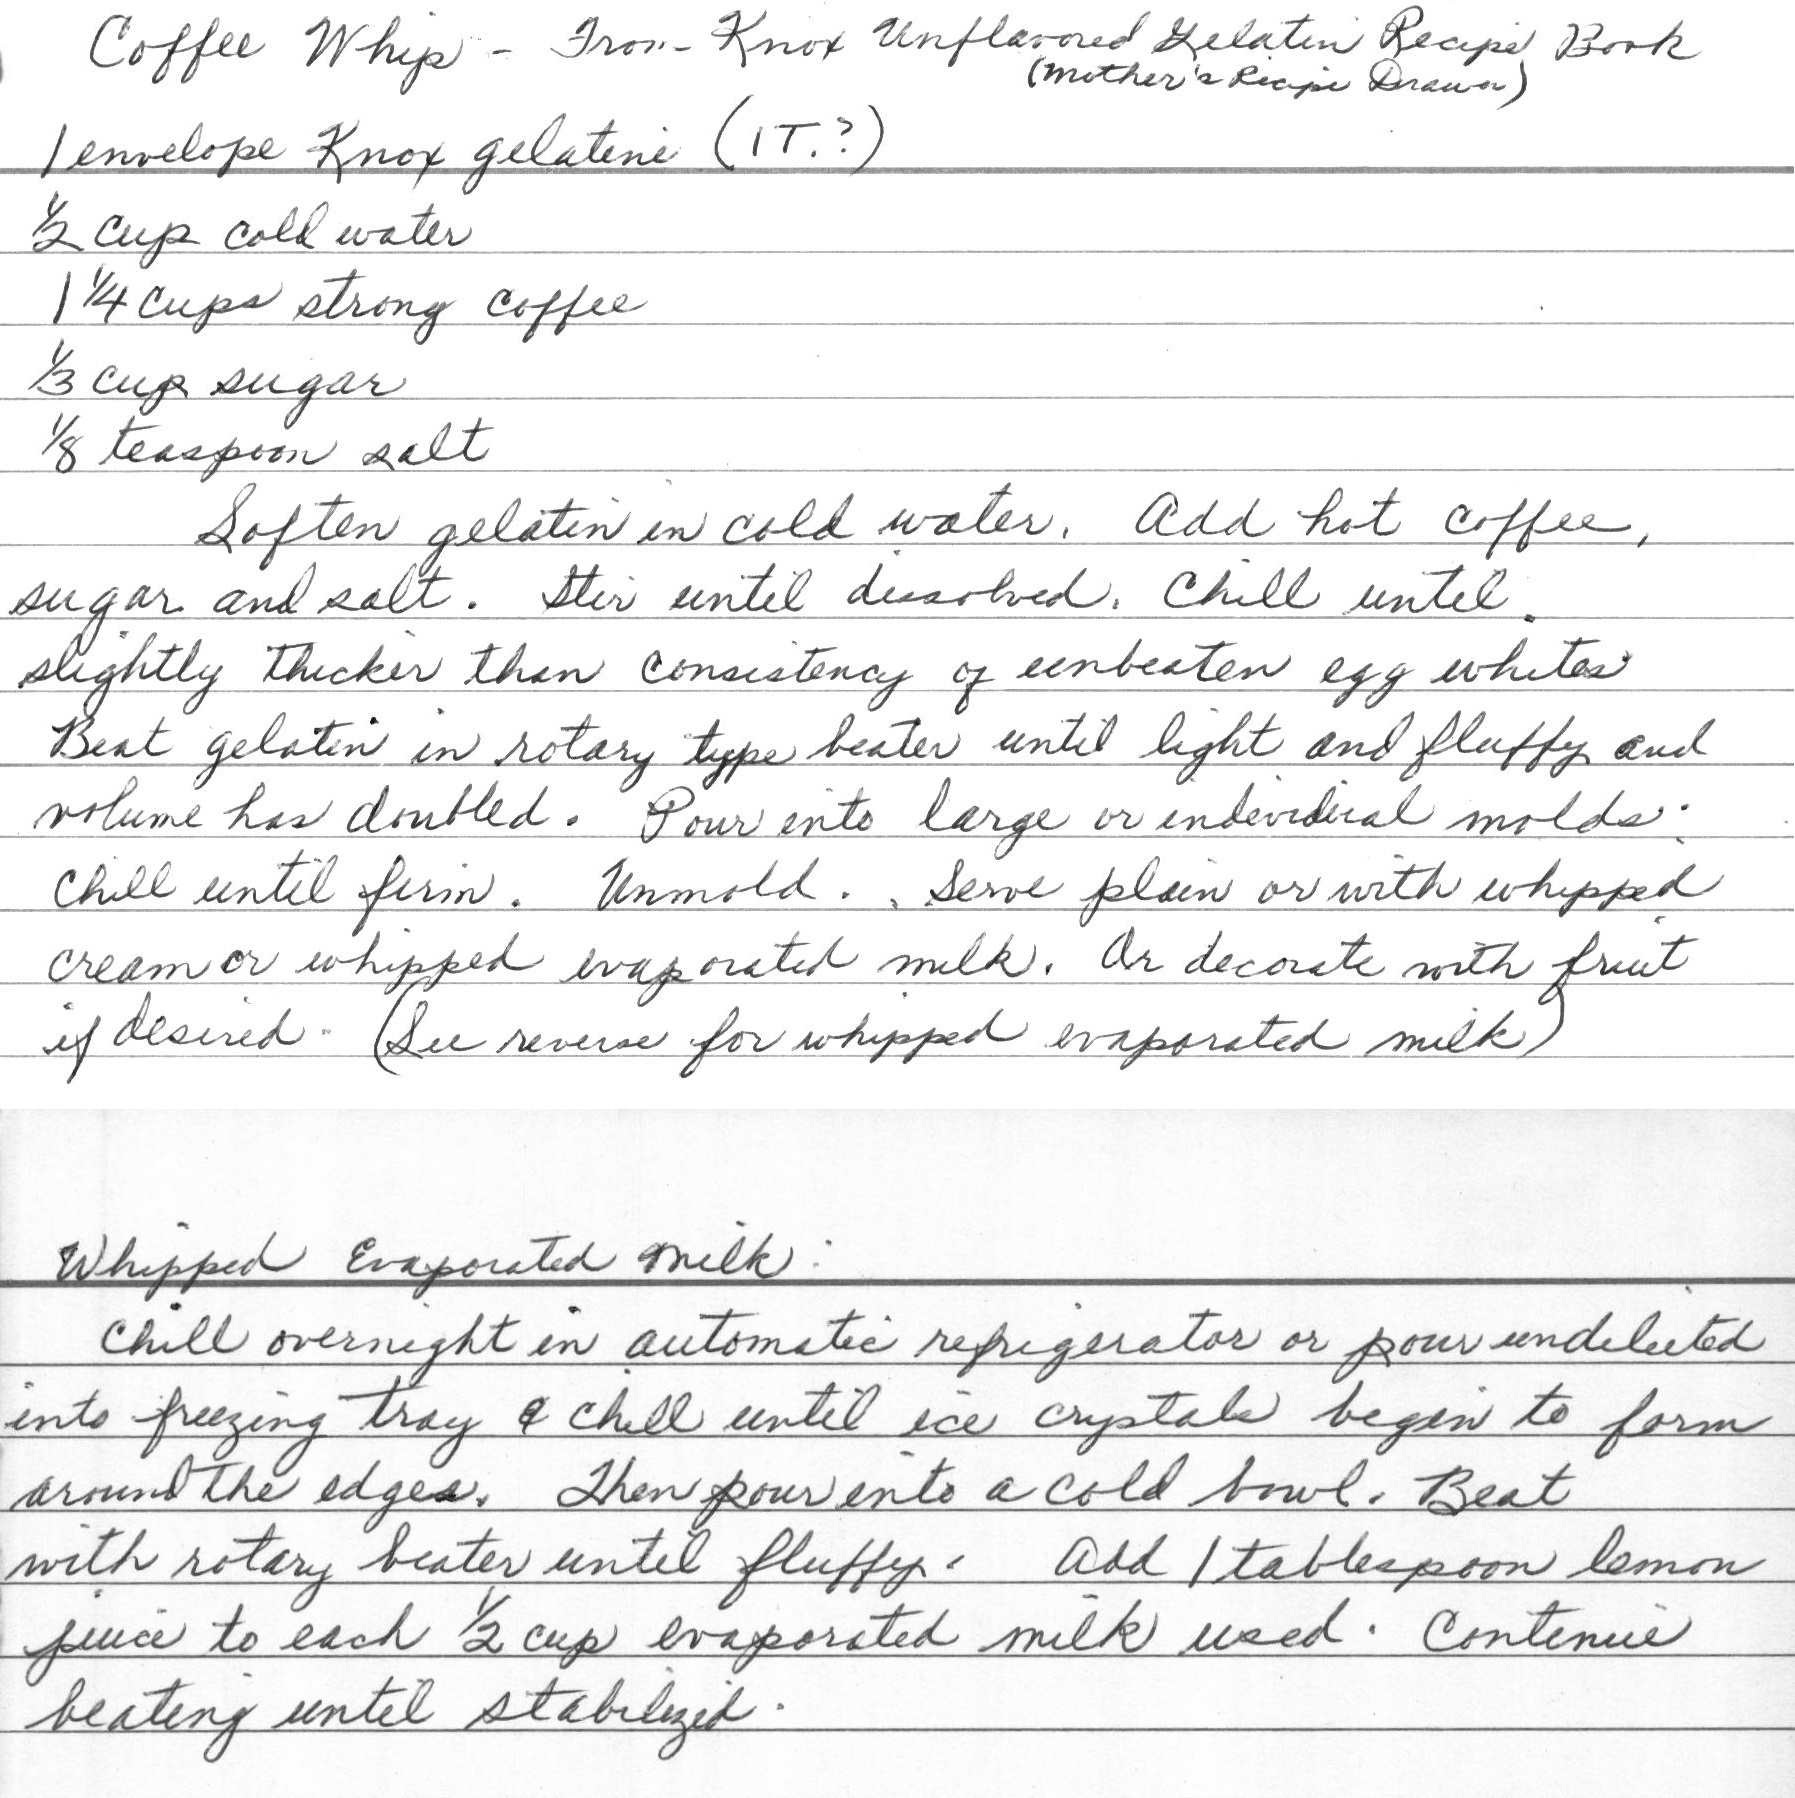 Coffee Whip - From Knox Unflavored Gelatin Recipe Book
(Mother's Recipe Drawer)
1 envelope Knox gelatine (1 T.?)
1/2 cup cold water
1 1/4 cups strong coffee
1/3 cup sugar
1/8 teaspoon salt
Soften gelatin in cold water. Add hot coffee,
sugar and salt. Stir until dissolved. Chill until
slightly thicker than consistency of unbeaten egg whites
Beat gelatin in rotary type beater until light and fluffy and
volume has doubled. Pour into large or individual molds.
Chill until firm. Unmold. Serve plain or with whipped
cream or whipped evaporated milk. Or decorate with fruit
if desired. (See reverse for whipped evaporated milk)
Whipped Evaporated Milk:
Chill overnight in automatic refrigerator or pour undiluted
into freezing tray & chill until ice crystals begin to form
around the edges. Then pour into a cold bowl. Beat
with rotary beater until fluffy. Add 1 tablespoon lemon
juice to each 1/2 cup evaporated milk used. Continue
beating until stabilized.